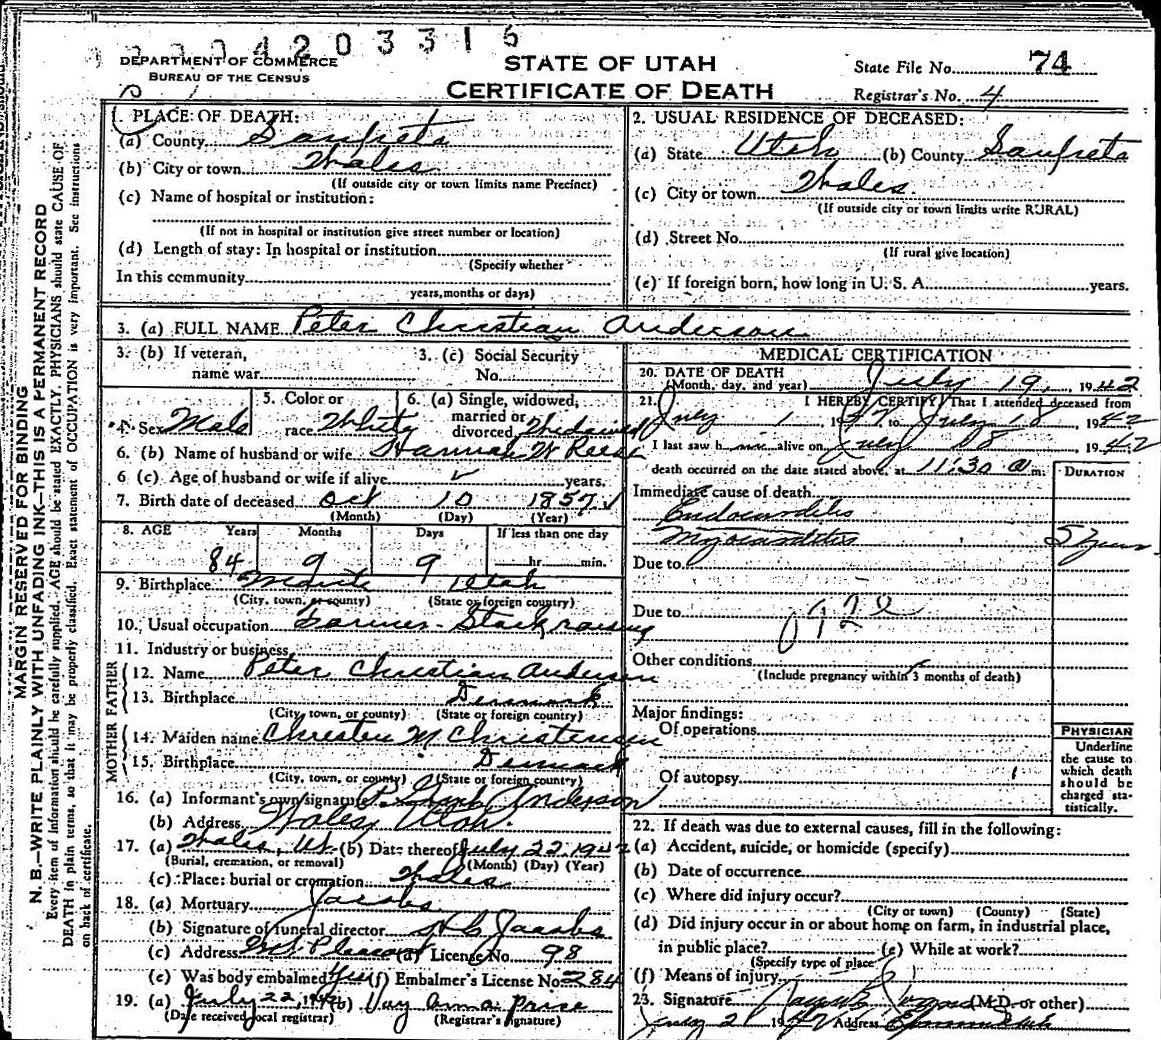 4203316
DEPARTMENT OF COMMERCE
BUREAU OF THE CENSUS
STATE OF UTAH
CERTIFICATE OF DEATH
State File No. 74
Registrar's No. 4
MARGIN RESERVED FOR BINDING
N. B.—WRITE PLAINLY WITH UNFADING INK—THIS IS A PERMANENT RECORD
Every item of information should be carefully supplied. AGE should be stated EXACTLY. PHYSICIANS should state CAUSE OF
DEATH in plain terms, so that it may be properly classified. Exact statement of OCCUPATION is very important. See instructions
on back of certificate.
1. PLACE OF DEATH:
(a) County Sanpete
(b) City or town Wales
(If outside city or town limits name Precinct)
(c) Name of hospital or institution:
(If not in hospital or institution give street number or location)
(d) Length of stay: In hospital or institution
(Specify whether
In this community
years, months or days)
2. USUAL RESIDENCE OF DECEASED:
(a) State Utah (b) County Sanpete
(c) City or town Wales
(If outside city or town limits write RURAL)
(d) Street No.
(If rural give location)
(e) If foreign born, how long in U. S. A. years.
3. (a) FULL NAME Peter Christian Anderson
3. (b) If veteran,
name war
3. (c) Social Security
No.
4. Sex Male
5. Color or
race White
6. (a) Single, widowed,
married or
divorced Widowed
6. (b) Name of husband or wife Hannah W Rees
6 (c) Age of husband or wife if alive years.
7. Birth date of deceased Oct 10 1857
(Month) (Day) (Year)
8. AGE Years Months Days If less than one day
84 9 9 hr. min.
9. Birthplace Utah
(City, town, or county) (State or foreign country)
10. Usual occupation Farmer - Stock raising
11. Industry or business
FATHER
12. Name Peter Christian Anderson
13. Birthplace Denmark
(City, town, or county) (State or foreign country)
MOTHER
14. Maiden name M Christensen
15. Birthplace Denmark
(City, town, or county) (State or foreign country)
16. (a) Informant's own signature P. Anderson
(b) Address Wales, Utah.
17. (a) Wales, Ut. (b) Date thereof July 22 1942
(Burial, cremation, or removal) (Month) (Day) (Year)
(c) Place: burial or cremation Wales
18. (a) Mortuary Jacobs
(b) Signature of funeral director H C Jacobs
(c) Address Mt Pleasant (d) License No. 98
(e) Was body embalmed Yes (f) Embalmer's License No. 284
19. (a) July 22, 1942 (b)
(Date received local registrar) (Registrar's signature)
MEDICAL CERTIFICATION
20. DATE OF DEATH
(Month, day, and year) July 19, 1942
21. I HEREBY CERTIFY, That I attended deceased from
July 1 1942 to July 18 1942
I last saw him alive on July 18 1942
death occurred on the date stated above, at 11:30 a.m.
DURATION
Immediate cause of death
Endocarditis
Myocarditis 5 years
Due to
Due to
Other conditions
(Include pregnancy within 3 months of death)
Major findings:
Of operations
Of autopsy
PHYSICIAN
Underline
the cause to
which death
should be
charged sta-
tistically.
22. If death was due to external causes, fill in the following:
(a) Accident, suicide, or homicide (specify)
(b) Date of occurrence
(c) Where did injury occur?
(City or town) (County) (State)
(d) Did injury occur in or about home on farm, in industrial place,
in public place? (e) While at work?
(Specify type of place)
(f) Means of injury
23. Signature (M.D. or other)
July 21 1942 Address